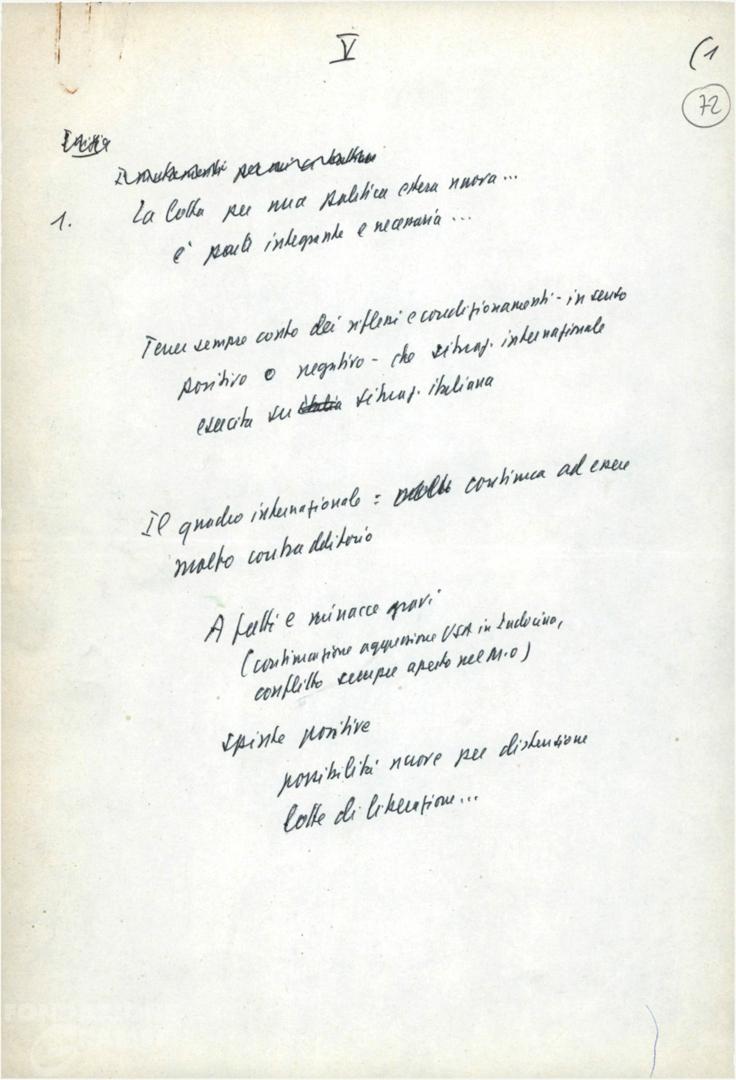 V
(1
72
1. La lotta per una politica estera nuova...
è parte integrante e necessaria...
Tener sempre conto dei riflessi e condizionamenti - in senso
positivo o negativo - che situaz. internazionale
esercita su italia situaz. italiana
Il quadro internazionale: continua ad essere
molto contraddittorio
A fatti e minacce gravi
(continuazione aggressione USA in Indocina,
conflitto sempre aperto nel M.O)
spinte positive
possibilità nuove per distensione
lotte di liberazione...
FONDAZIONE